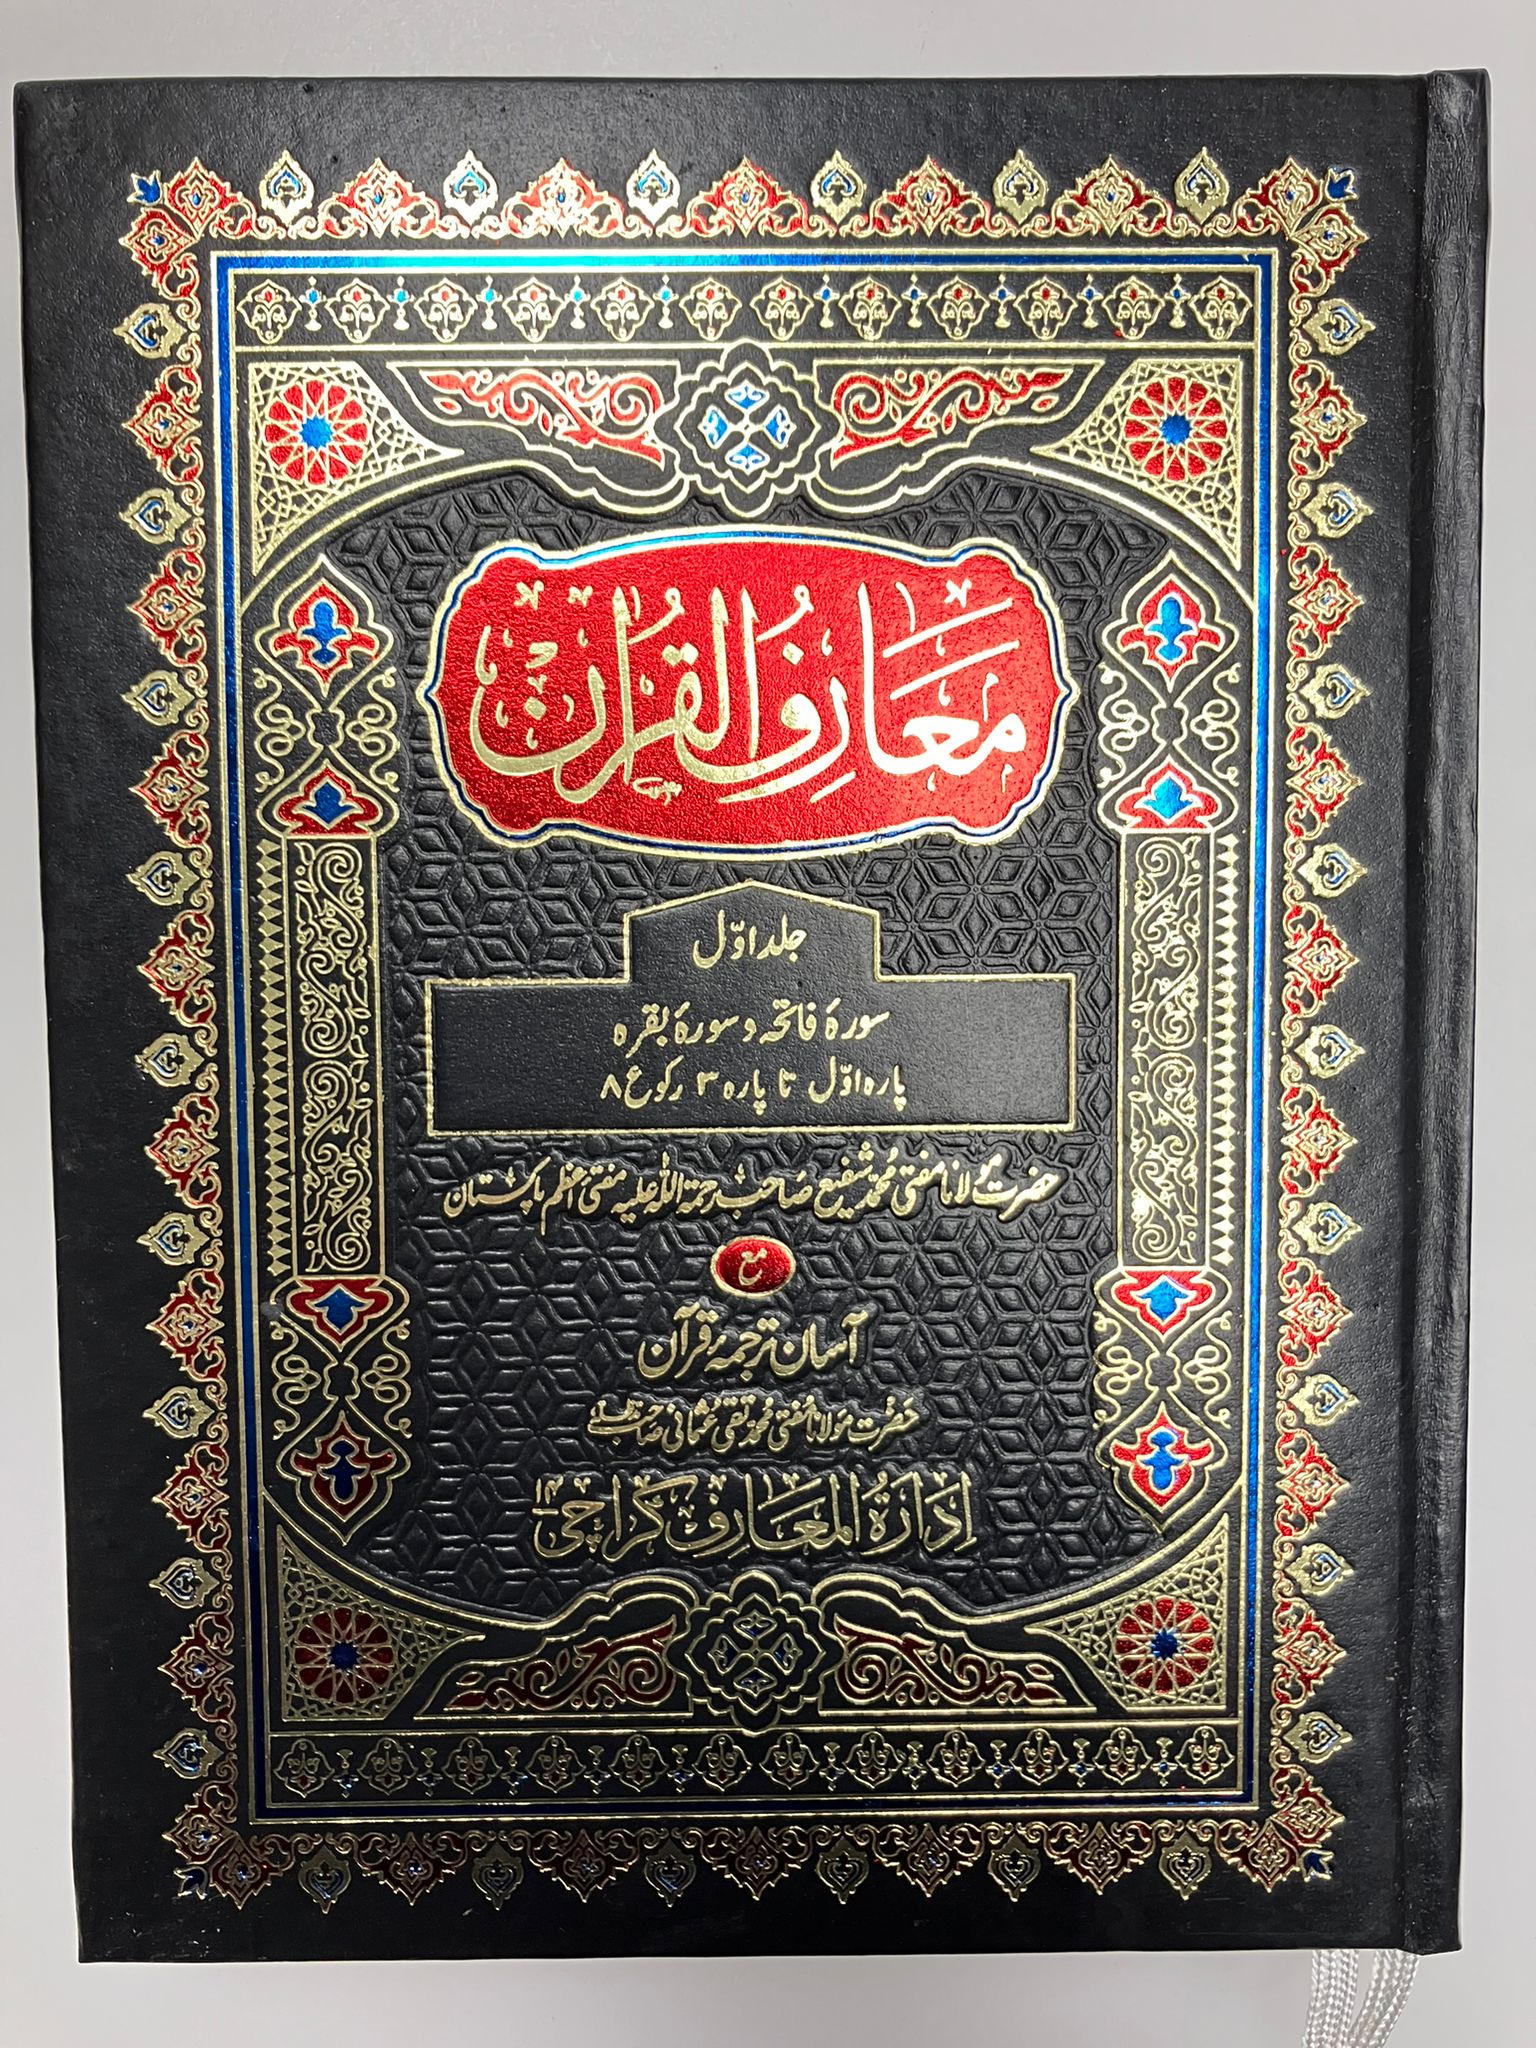 معارف القرآن
جلد اوّل
سورۂ فاتحہ و سورۂ بقرہ
پارہ اوّل تا پارہ ۳ رکوع ۸
حضرت مولانا مفتی محمد شفیع صاحب رحمۃ اللہ علیہ مفتی اعظم پاکستان
مع
آسان ترجمۂ قرآن
حضرت مولانا مفتی محمد تقی عثمانی صاحب
اِدارۃ المعارف کراچی ۱۴